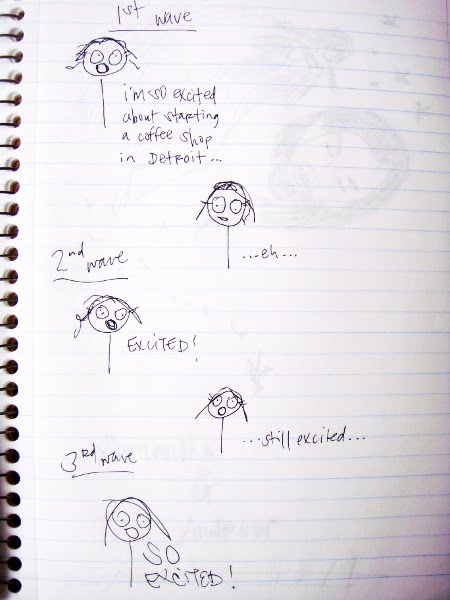 1st wave
i'm so excited
about starting
a coffee shop
in Detroit...
...eh...
2nd wave
EXCITED!
...still excited...
3rd wave
SO
EXCITED!